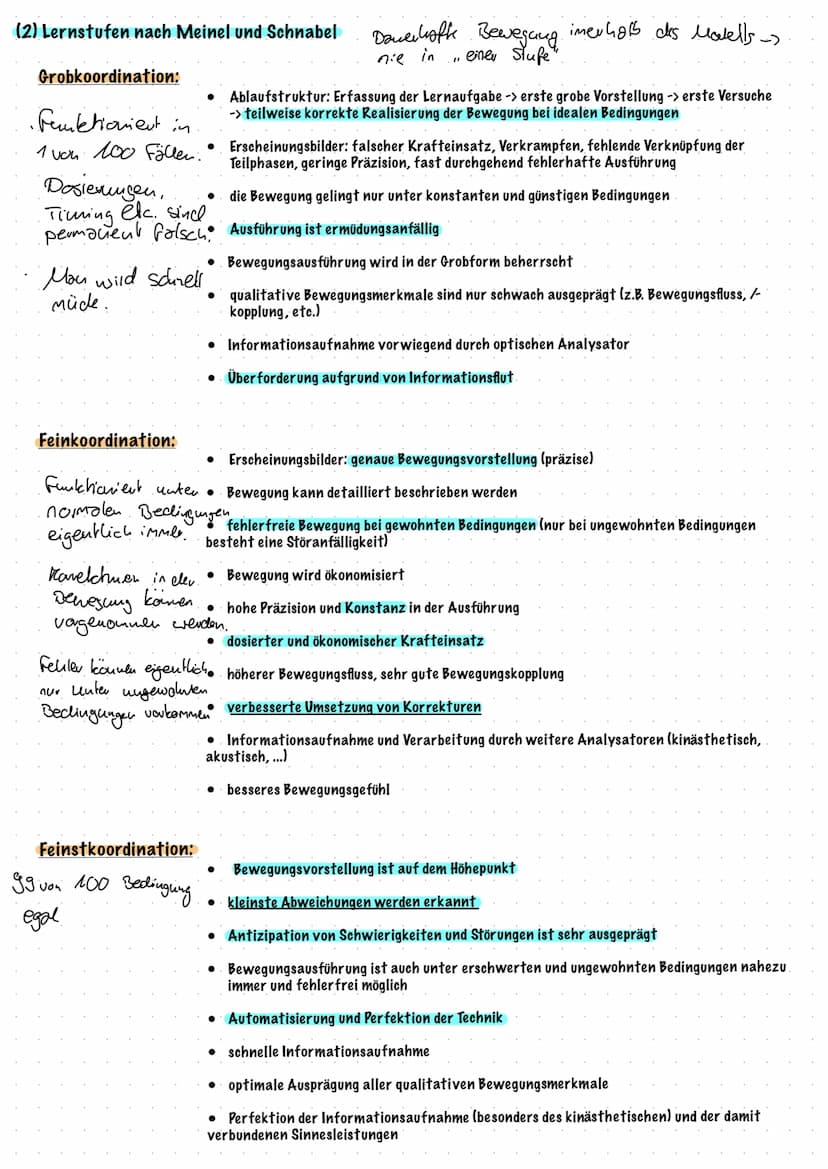 (2) Lernstufen nach Meinel und Schnabel
Dauerhafte Bewegung innerhalb des Modells ->
nie in "einer Stufe"
Grobkoordination:
• Ablaufstruktur: Erfassung der Lernaufgabe -> erste grobe Vorstellung -> erste Versuche
-> teilweise korrekte Realisierung der Bewegung bei idealen Bedingungen
Funktioniert in
1 von 100 Fällen.
• Erscheinungsbilder: falscher Krafteinsatz, Verkrampfen, fehlende Verknüpfung der
Teilphasen, geringe Präzision, fast durchgehend fehlerhafte Ausführung
Dosierungen,
Timing etc. sind
permanent falsch.
• die Bewegung gelingt nur unter konstanten und günstigen Bedingungen
• Ausführung ist ermüdungsanfällig
• Bewegungsausführung wird in der Grobform beherrscht
Man wird schnell
müde.
• qualitative Bewegungsmerkmale sind nur schwach ausgeprägt (z.B. Bewegungsfluss, /-
kopplung, etc.)
• Informationsaufnahme vorwiegend durch optischen Analysator
• Überforderung aufgrund von Informationsflut
Feinkoordination:
• Erscheinungsbilder: genaue Bewegungsvorstellung (präzise)
Funktioniert unter
normalen Bedingungen
eigentlich immer.
• Bewegung kann detailliert beschrieben werden
• fehlerfreie Bewegung bei gewohnten Bedingungen (nur bei ungewohnten Bedingungen
besteht eine Störanfälligkeit)
Korrekturen in der
Bewegung können
vorgenommen werden.
• Bewegung wird ökonomisiert
• hohe Präzision und Konstanz in der Ausführung
• dosierter und ökonomischer Krafteinsatz
Fehler können eigentlich
nur unter ungewohnten
Bedingungen vorkommen
• höherer Bewegungsfluss, sehr gute Bewegungskopplung
• verbesserte Umsetzung von Korrekturen
• Informationsaufnahme und Verarbeitung durch weitere Analysatoren (kinästhetisch,
akustisch, ...)
• besseres Bewegungsgefühl
Feinstkoordination:
99 von 100 Bedingung
egal
• Bewegungsvorstellung ist auf dem Höhepunkt
• kleinste Abweichungen werden erkannt
• Antizipation von Schwierigkeiten und Störungen ist sehr ausgeprägt
• Bewegungsausführung ist auch unter erschwerten und ungewohnten Bedingungen nahezu
immer und fehlerfrei möglich
• Automatisierung und Perfektion der Technik
• schnelle Informationsaufnahme
• optimale Ausprägung aller qualitativen Bewegungsmerkmale
• Perfektion der Informationsaufnahme (besonders des kinästhetischen) und der damit
verbundenen Sinnesleistungen